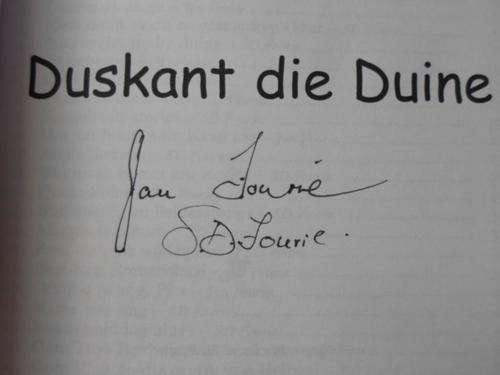 Duskant die Duine
Jan Fourie
S.D. Fourie.